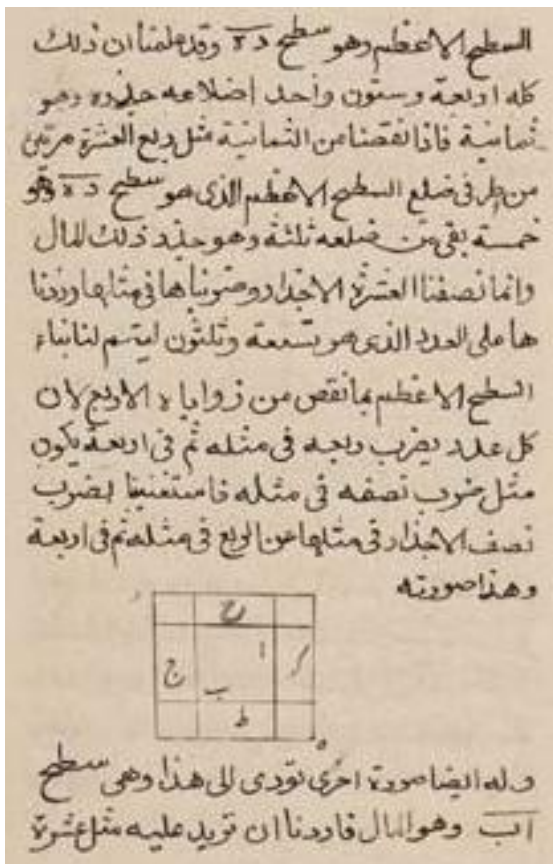 السطح الاعظم وهو سطح د ه وقد علمنا ان ذلك
كله اربعة وستون واحد اضلاعه جذره وهو
ثمانية فاذا نقصنا من الثمانية مثل ربع العشرة مرتين
من طرفي ضلع السطح الاعظم الذي هو سطح د ه وهو
خمسة بقي من ضلعه ثلثة وهو جذر ذلك المال
وانما نصفنا العشرة الاجذار وضربناها في مثلها وزدنا
ها على العدد الذي هو تسعة وثلثون ليتم لنا بناء
السطح الاعظم بما نقص من زواياه الاربع لان
كل عدد يضرب ربعه في مثله ثم في اربعة يكون
مثل ضرب نصفه في مثله فاستغنينا بضرب
نصف الاجذار في مثلها عن الربع في مثله ثم في اربعة
وهذا صورته
ح
ا
ج
ب
ط
ه
وله ايضا صورة اخرى تودى الى هذا وهى سطح
ا ب وهو المال فاردنا ان نزيد عليه مثل عشرة